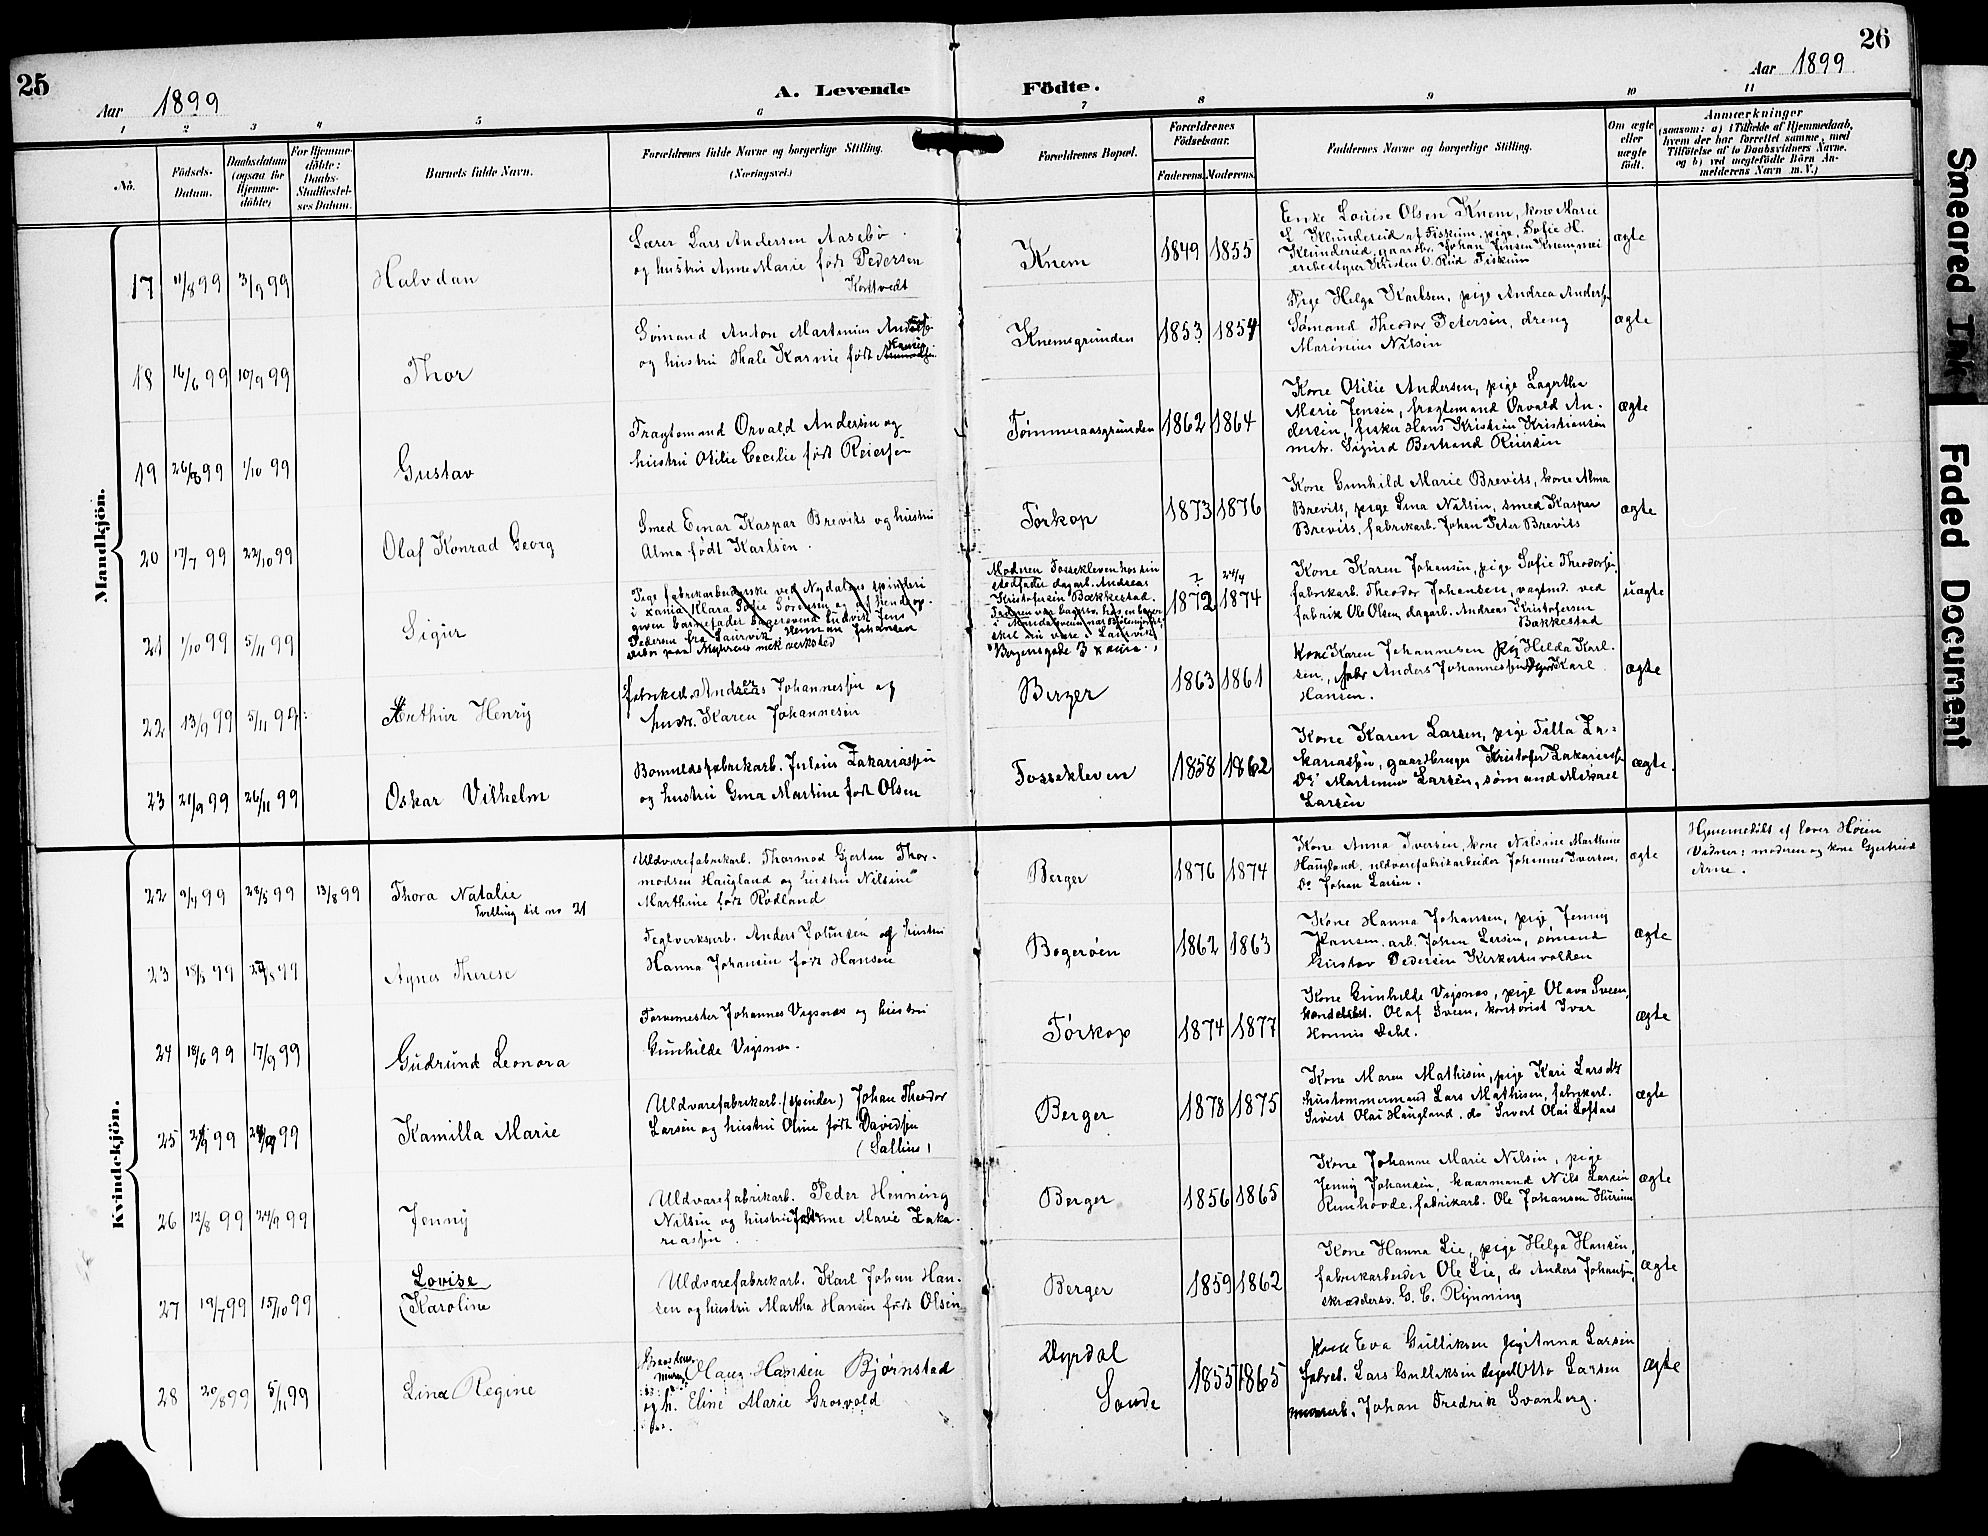 25
26
Aar 1899
A. Levende
Födte.
Aar 1899
1 2 3 4 5 6 7 8 9 10 11
No.
Födsels-
Datum.
Daabsdatum
(ogsaa for
Hjemme-
döbte)
For Hjemme-
döbte:
Daabs-
Stadfæstel-
ses Datum.
Barnets fulde Navn.
Forældrenes fulde Navne og borgerlige Stilling.
(Næringsvei.)
Forældrenes Bopæl.
Forældrenes
Födselsaar.
Faderens.
Moderens.
Faddernes Navne og borgerlige Stilling.
Om ægte
eller
uægte
födt.
Anmærkninger
(saasom: a) i Tilfælde af Hjemmedaab,
hvem der har forrettet samme, med
Tilföielse af to Daabsvidners Navne.
og b) ved uægtefödte Börn An-
melderens Navn m. V.)
Mandkjön.
17 11/8 99 3/9 99
Halvdan
Lærer Lars Andersen Aasebö
og hustru Anne Marie født Pedersen
Kortvedt
Knem
1849 1855
Enke Louise Olsen Knem, kone Marie
L. Klundereid af Fiskum, pige Sofie H.
Klundereid, gaardbr. Johan Jensen Knem,
Kristen O. Rud Fiskum
ægte
18 16/6 99 10/9 99
Thor
Sømand Anton Martinius
og hustru Thale Karnie født
Knemsgrunden
1853 1854
Pige Helga Karlsen, pige Andrea Andersen
Sømand Theodor Petersen, dreng
Marinius Nilsen
ægte
19 26/8 99 1/10 99
Gustav
Fragtemand Orvald Andersen og
hustru Otilie Cecilie født Reiersen
Tømmeraasgrunden
1862 1864
Kone Otilie Andersen, pige Lagertha
Marie Jensen, fragtemand Orvald An-
dersen, fisker Hans Kristian Kristiansen
matr. Sigurd Bertrand Reiersen
ægte
20 17/7 99 22/10 99
Olaf Konrad Georg
Smed Einar Kaspar Breviks og hustru
Alma født Karlsen.
Tørkop
1873 1876
Kone Gunhild Marie Breviks, kone Alma
Breviks, pige Lina Nilsen, smed Kaspar
Breviks, fabrikarb. Johan Peter Breviks
ægte
21 1/10 99 5/11 99
Sigur
Pige fabrikarbeiderske ved Nydalens spinderi
i Xania Klara Sofie Sørensen og af hende op-
given barnefader bagersvend Ludvik Jens
Pedersen fra Laurvik Herman Johansen
arbr paa Myhrens mek verksted
Moderen Fossekleven hos sin
stedfader dagarb. Andreas
Kristofersen Bækkestad.
Bergensgade 3 Xania.
?
1872
24/4
1874
Kone Karen Johansen, pige Sofie Theodorsen,
fabrikarb. Theodor Johansen, vagtmd. ved
fabrik Ole Olsen, dagarb. Andreas Kristofersen
Bækkestad
uægte
22 13/9 99 5/11 99
Arthur Henry
fabrikarb. Anders Johannessen og
hustr. Karen Johannesen
Berger
1863 1861
Kone Karen Johannesen pig Helda Karl-
sen, fabr Anders Johannessen Karl
Hansen.
ægte
23 21/9 99 26/11 99
Oskar Vilhelm
Bomuldsfabrikarb. Julius Zakariassen
og hustru Gina Martine født Olsen
Fossekleven
1858 1862
Kone Karen Larsen, pige Tilla Za-
kariassen, gaardbruger Kristofer Zakariassen
Do Martinius Larsen, sømand Mikael
Larsen
ægte.
Kvindekjön.
22 9/4 99 23/5 99 13/8 99
Thora Natalie
Tvilling til no 21
Uldvarefabrikarb. Thormod Gjerten Thor-
modsen Haugland og hustru Nilsine
Marthine født Rødland
Berger
1876 1874
Kone Anna Iversen, kone Nilsine Marthine
Haugland, uldvarefabrikarbeider Johannes Iversen,
Do Johan Larsen.
ægte
Hjemmedöbt af lærer Høien
Vidner: moderen og kone Gjertrud
Arne.
23 18/5 99 27/8 99
Agnes Therese
Teglverksarb. Anders Johansen og hustru
Hanna Johansen født Hansen
Bogerøen
1862 1863
Kone Hanna Johansen, pige Jenny
Hansen, arb. Johan Larsen, sømand
Gustav Pedersen Kirkestuvolden
ægte
24 18/6 99 17/9 99
Gudrund Leonora
Farvemester Johannes Vigsnæs og hustru
Gunhilde Vigsnæs.
Tørkop
1874 1877
Kone Gunhilde Vigsnæs, pige Olava Sveen,
Olaf Sveen, kontorist Ivar
Dahl.
ægte
25 99 99
Kamilla Marie
Uldvarefabrikarb. (spinder) Johan Theodor
Larsen og hustru Oline født Davidsen
(Sallius)
Berger
1878 1875
Kone Maren Mathisen, pige Kari Larsdtr
hustommermand Lars Mathisen, fabrikarb.
Sivert Olai Haugland, do Sivert Olai Loftaas
ægte
26 12/8 99 24/9 99
Jenny
Uldvarefabrikarb. Peder Henning
Nilsen og hustru Johanne Marie Zaka-
riassen.
Berger
1856 1865
Kone Johanne Marie Nilsen, pige
Jenny Johansen, kaarmand Nils Larsen
Runhovde, fabrikarb. Ole Johansen Hurum
ægte
27 19/7 99 15/10 99
Lovise
(Karoline
Uldvarefabrikarb. Karl Johan Han-
sen og hustru Martha Hansen født Olsen
Berger
1859 1862
Kone Hanna Lie, pige Helga Hansen,
fabrikarbeider Ole Lie, do Anders Johansen,
skræddersv. G. C. Rynning
ægte
28 20/8 99 5/11 99
Lina Regine
Hansen Bjørnstad
og h. Eline Marie Grosvold
Dyrdal
Sande
1855 1865
Kone Eva Gulliksen pig Anna Larsen
fabrab. Lars Gulliksen Otto Larsen
Johan Fredrik Svanberg.
ægte
Smeared Ink
Faded Document